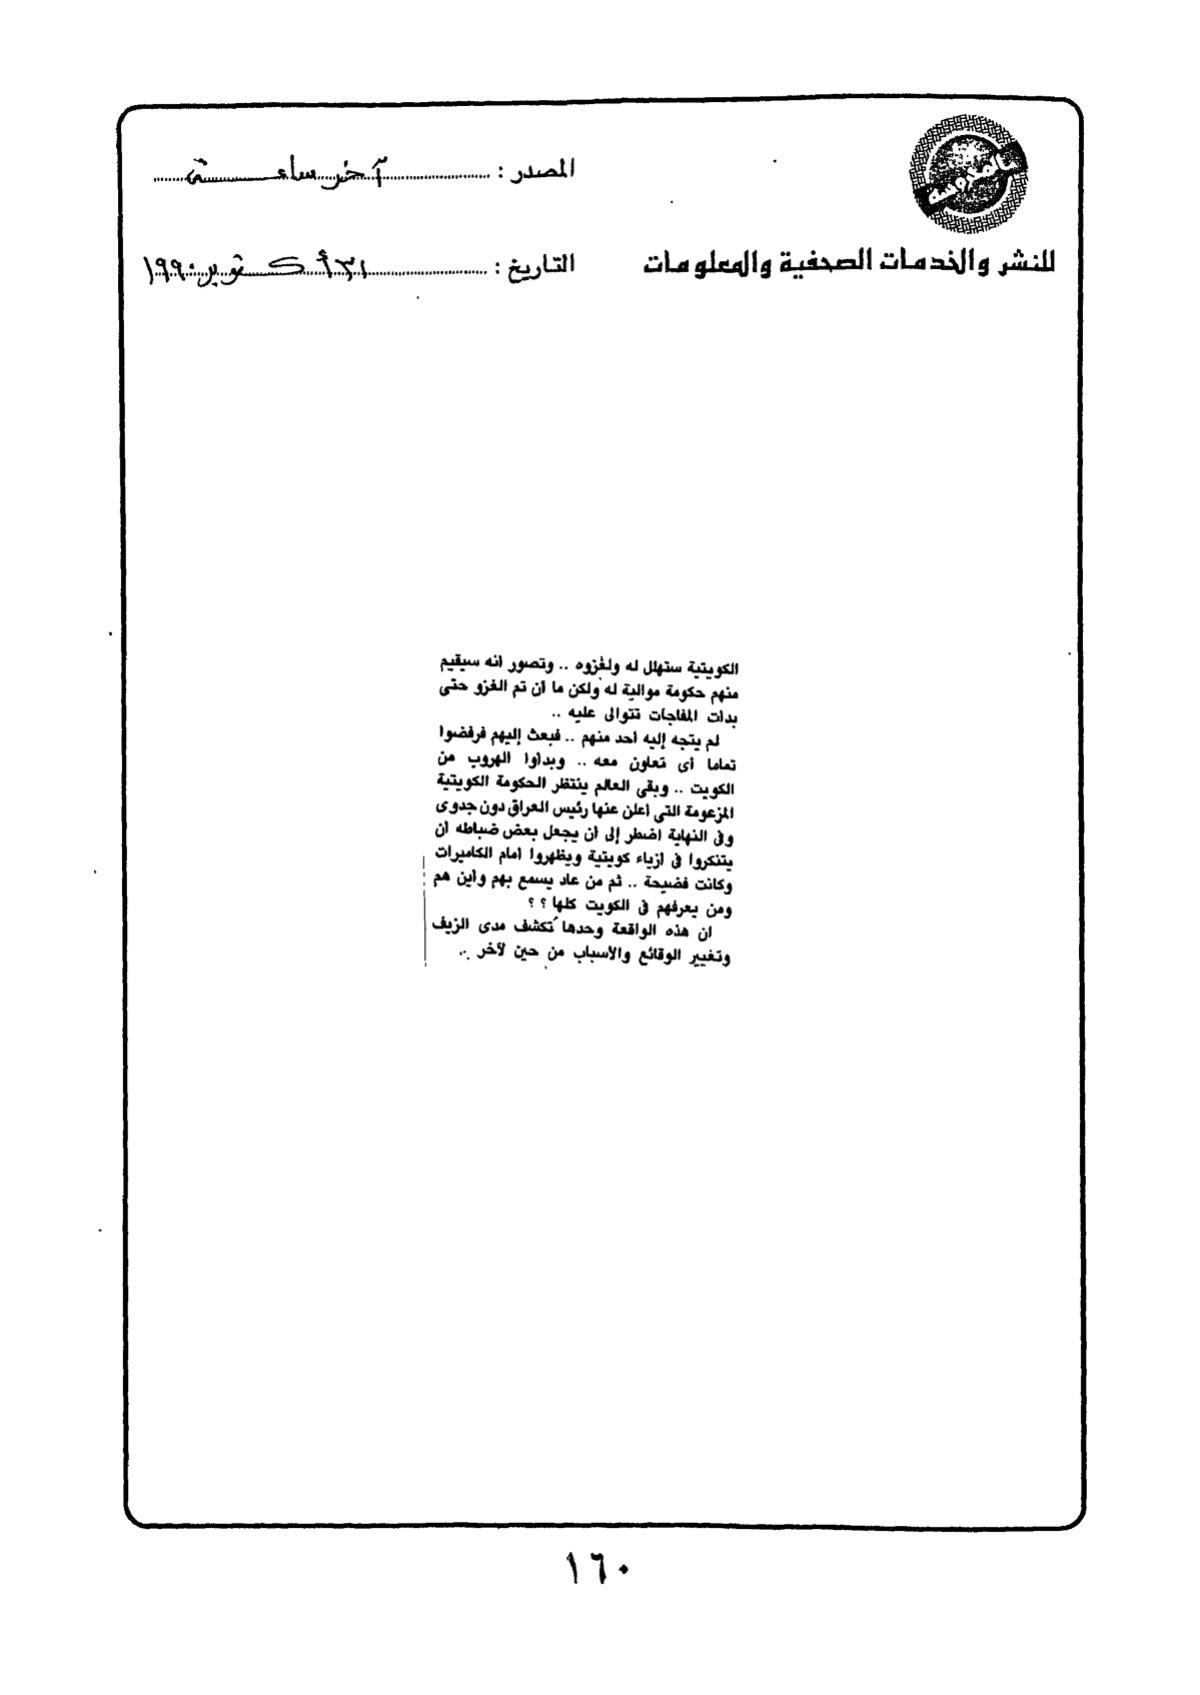 المصدر : آخر ساعة
للنشر والخدمات الصحفية والمعلومات
التاريخ : ٣١ أكتوبر ١٩٩٠
الكويتية ستهلل له ولغزوه .. وتصور انه سيقيم
منهم حكومة موالية له ولكن ما أن تم الغزو حتى
بدأت المفاجات تتوالى عليه ..
لم يتجه إليه أحد منهم .. فبعث إليهم فرفضوا
تماما أى تعاون معه .. وبدأوا الهروب من
الكويت .. وبقى العالم ينتظر الحكومة الكويتية
المزعومة التى أعلن عنها رئيس العراق دون جدوى
وفى النهاية اضطر إلى أن يجعل بعض ضباطه أن
يتنكروا فى ازياء كويتية ويظهروا أمام الكاميرات
وكانت فضيحة .. ثم من عاد يسمع بهم وأين هم
ومن يعرفهم فى الكويت كلها ؟ ؟
ان هذه الواقعة وحدها تكشف مدى الزيف
وتغيير الوقائع والأسباب من حين لآخر ..
١٦٠